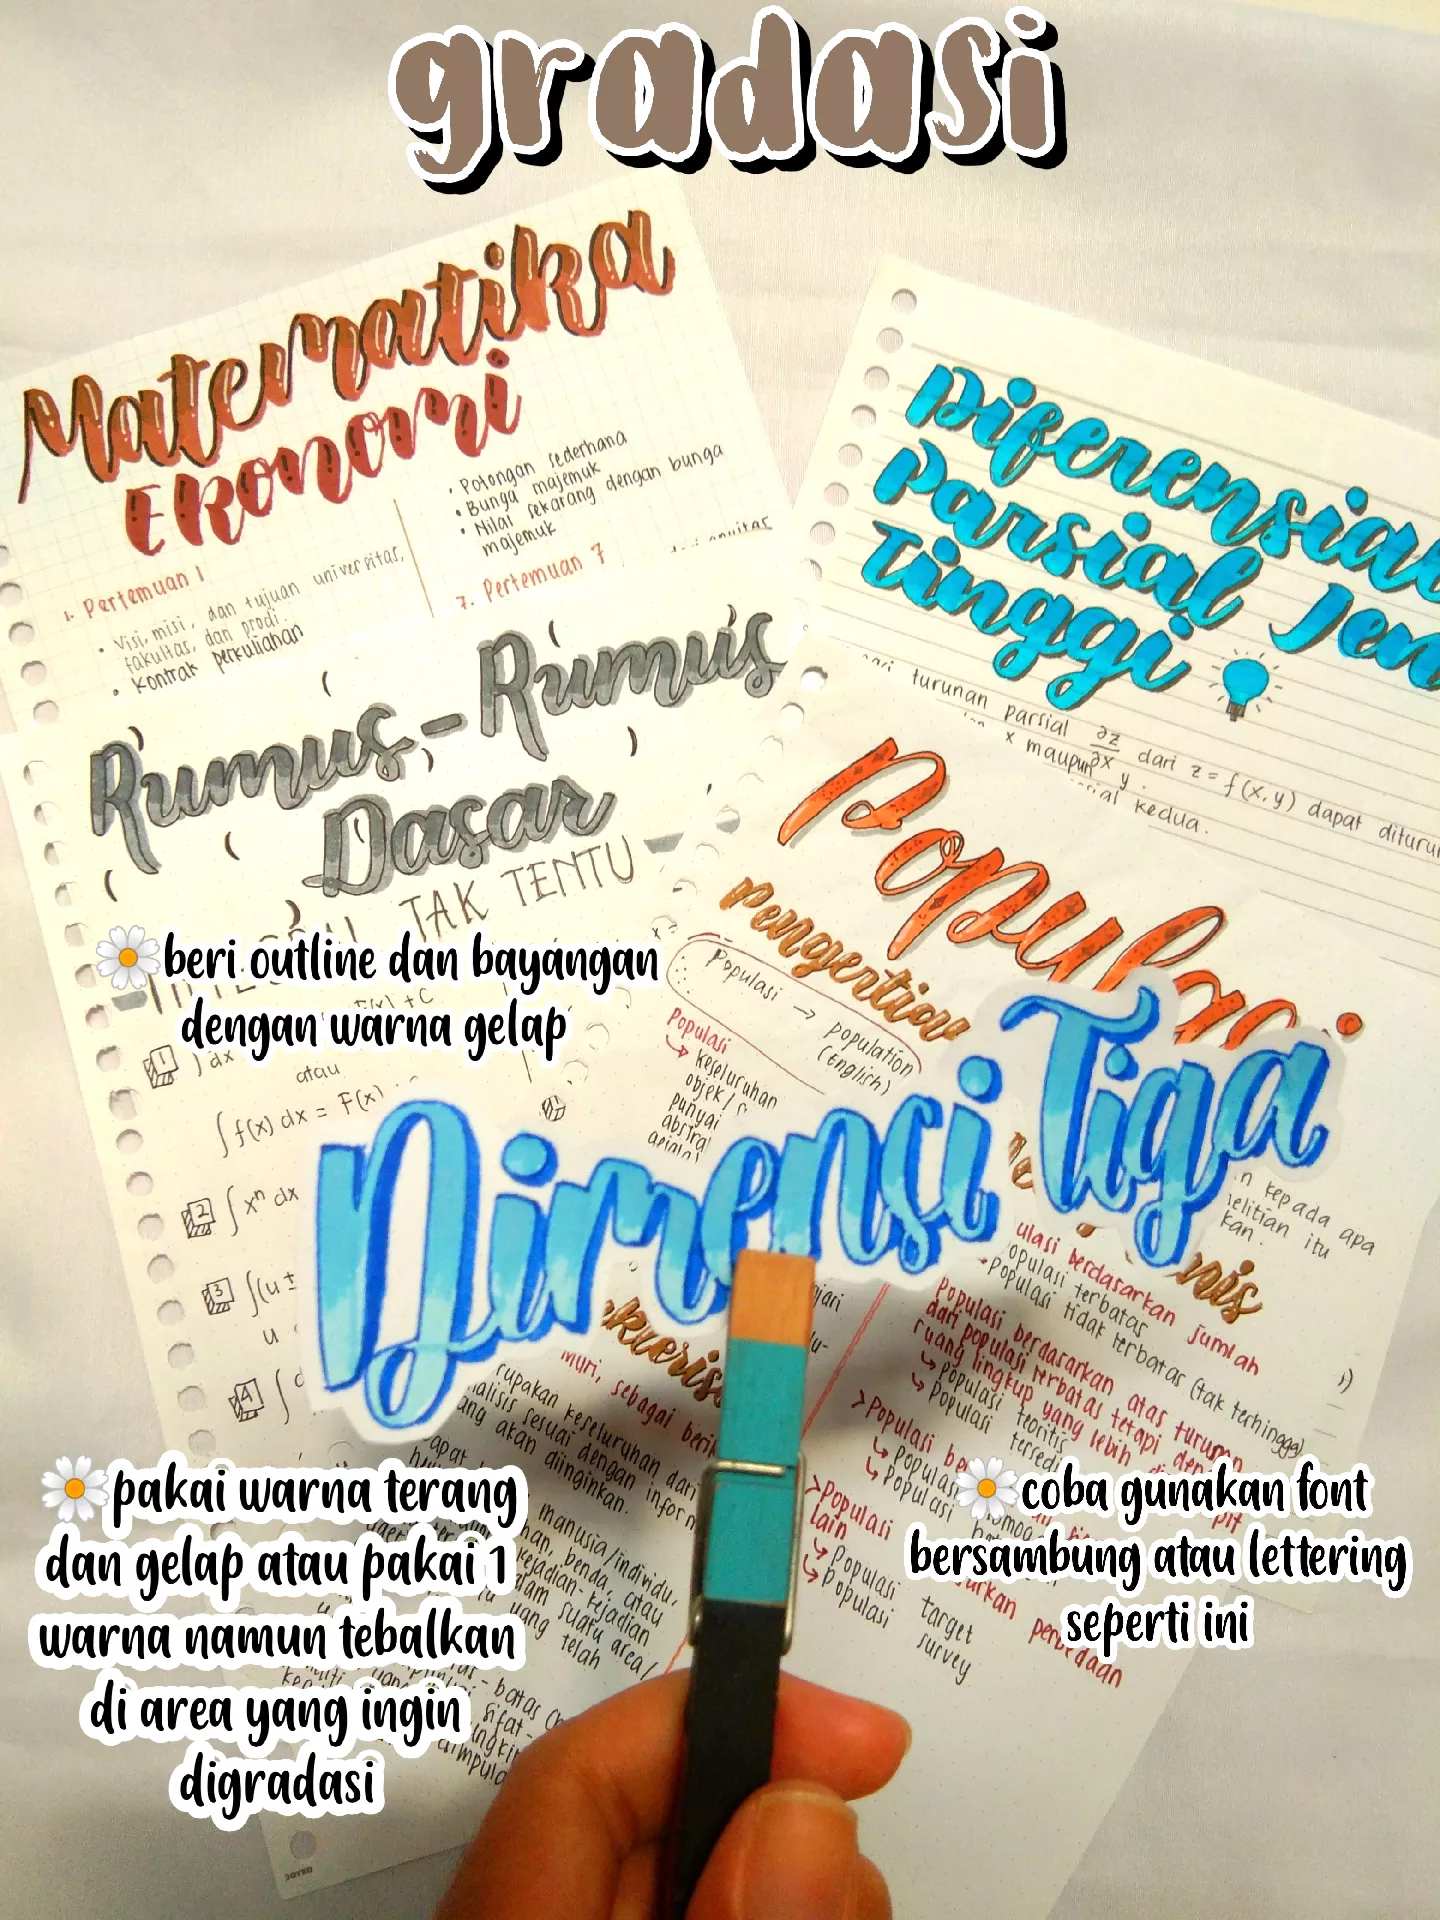 gradasi
Matematika
Ekonomi
• Potongan sederhana
• Bunga majemuk
• Nilai sekarang dengan bunga
majemuk
1. Pertemuan 1
• Visi, misi, dan tujuan universitas,
fakultas, dan prodi.
• Kontrak perkuliahan
7. Pertemuan 7
Diferensial
Parsial Jen
Tinggi
turunan parsial ∂z/∂x dari z = f(x,y) dapat diturun
x maupun y.
kedua.
Rumus-Rumus
Dasar
TAK TENTU
beri outline dan bayangan
dengan warna gelap
1 ) dx
atau
∫f(x) dx = F(x)
2 ∫xⁿ dx
3 ∫(u ±
u
4 ∫
Populasi
Pengertian
Populasi → population
(English)
Populasi
↳ keseluruhan
objek/
punyai
Dimensi Tiga
n kepada apa
elitian itu
kan.
ulasi berdasarkan jumlah
opulasi terbatas
Populasi tidak terbatas (tak terhingga)
Populasi berdasarkan atas turunan
dari populasi terbatas tetapi den
ruang lingkup yang lebih
↳ Populasi teoritis
↳ Populasi tersedi
> Populasi be
↳ Populasi
↳ Populasi
> Populasi
lain
↳ Populasi target
↳ Populasi survey
perbedaan
muri, sebagai beri
rupakan keseluruhan dari
nalisis sesuai dengan inform
ang akan diinginkan.
manusia/individu,
benda, atau
kejadian-kejadian
dalam suatu area/
yang telah
- batas
sifat-
pakai warna terang
dan gelap atau pakai 1
warna namun tebalkan
di area yang ingin
digradasi
coba gunakan font
bersambung atau lettering
seperti ini